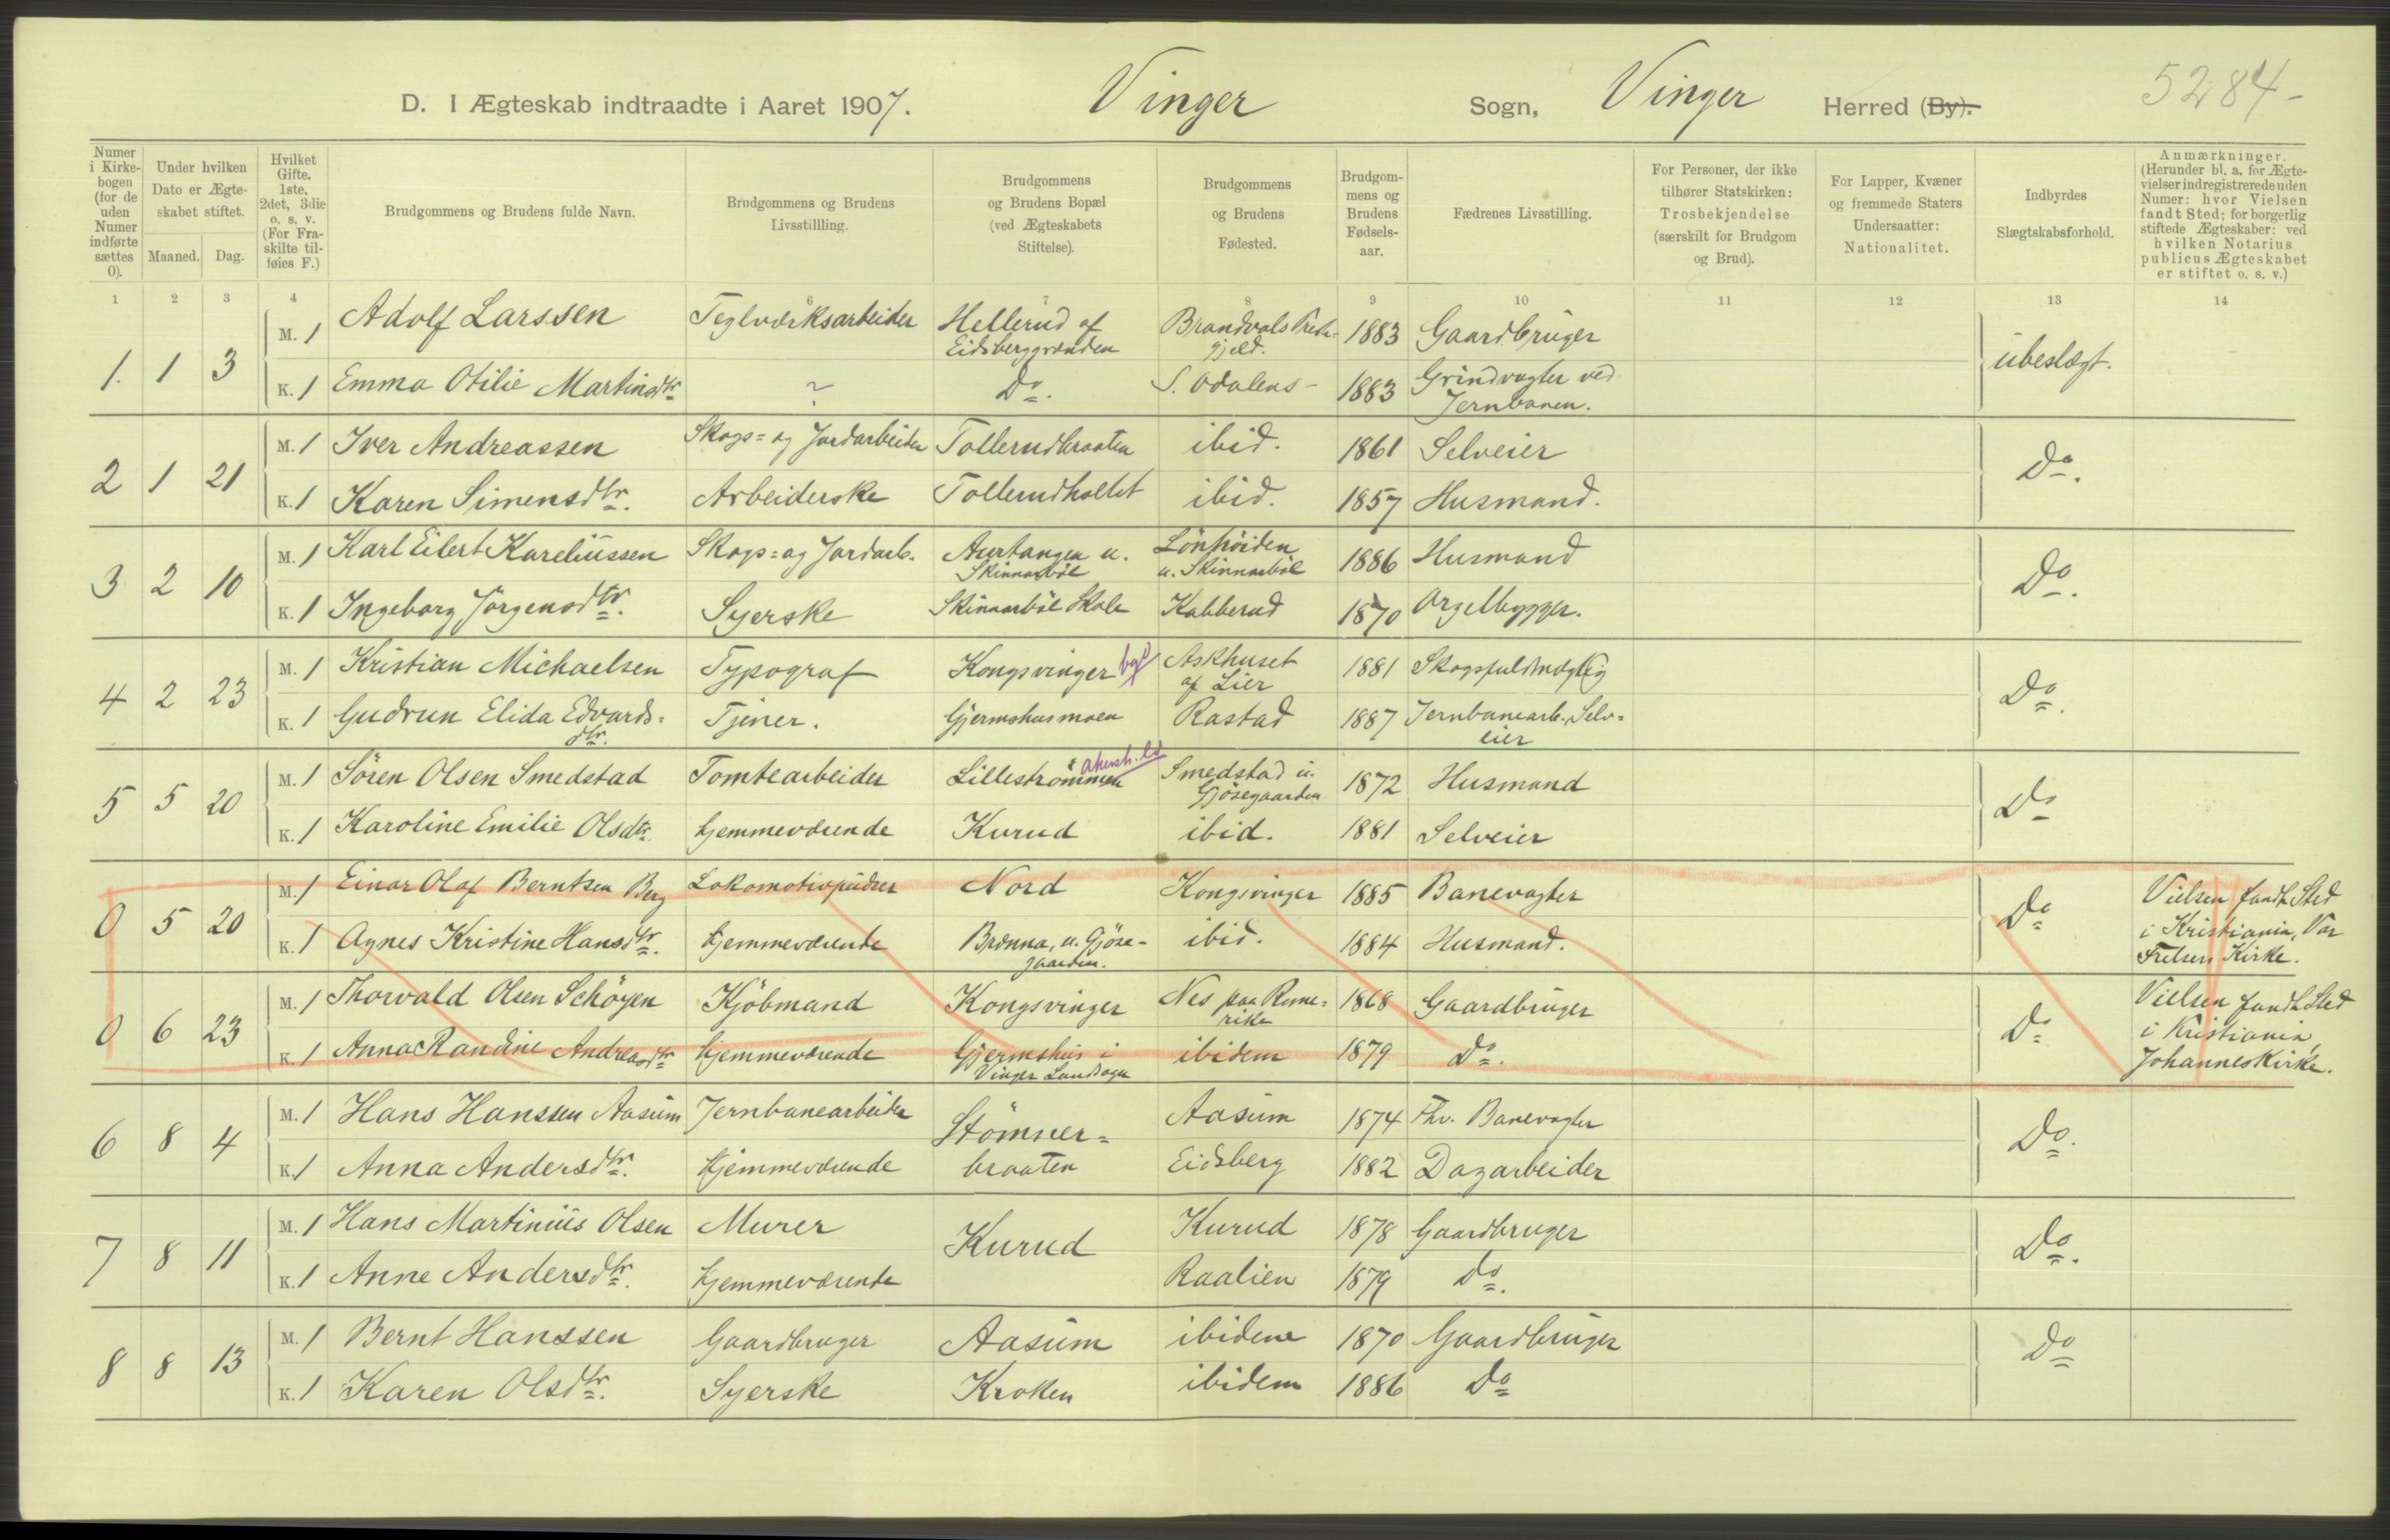 5284-
D. I Ægteskab indtraadte i Aaret 1907. Vinger Sogn, Vinger Herred (By).
Numer i Kirke-bogen (for de uden Numer indførte sættes 0).
Under hvilken Dato er Ægte-skabet stiftet.
Maaned. Dag.
Hvilket Gifte. 1ste, 2det, 3die o. s. v. (For Fra-skilte til-føies F.)
Brudgommens og Brudens fulde Navn.
Brudgommens og Brudens Livsstillling.
Brudgommens og Brudens Bopæl (ved Ægteskabets Stiftelse).
Brudgommens og Brudens Fødested.
Brudgom-mens og Brudens Fødsels-aar.
Fædrenes Livsstilling.
For Personer, der ikke tilhører Statskirken: Trosbekjendelse (særskilt for Brudgom og Brud).
For Lapper, Kvæner og fremmede Staters Undersaatter: Nationalitet.
Indbyrdes Slægtskabsforhold.
Anmærkninger. (Herunder bl. a. for Ægte-vielser indregistrerede uden Numer: hvor Vielsen fandt Sted; for borgerlig stiftede Ægteskaber: ved hvilken Notarius publicus Ægteskabet er stiftet o. s. v.)
1 2 3 4 6 7 8 9 10 11 12 13 14
1. 1 3 M. 1 Adolf Larssen Teglværksarbeider Hellerud af Eidsberggrænden Brandvals Præste-gjeld. 1883 Gaardbruger ubeslægt.
K. 1 Emma Otilie Martinsdtr. ~ Do. S. Odalens - 1883 Grindvagter ved Jernbanen.
2 1 21 M. 1 Iver Andreassen Skogs= og Jordarbeider Tollerudbraaten ibid. 1861 Selveier Do.
K. 1 Karen Simensdtr. Arbeiderske Tollerudholtet ibid. 1857 Husmand.
3 2 10 M. 1 Karl Eilert Kareliussen Skogs= og Jordarb. Aurtangen u. Skinnarbøl Lönhöiden u. Skinnarböl 1886 Husmand Do.
K. 1 Ingeborg Jörgensdtr. Syerske Skinnarböl Skole Kabberud 1870 Orgelbygger.
4 2 23 M. 1 Kristian Michaelsen Typograf Kongsvinger by Askhuset af Lier 1881 Skogsfuldmægtig Do.
K. 1 Gudrun Elida Edvards=dtr. Tjener. Gjermshusmoen Rastad 1887 Jernbanearb., Selv=eier
5 5 20 M. 1 Sören Olsen Smedstad Tomtearbeider Lilleströmmen Smedstad u. Gjösegaarden 1872 Husmand Do
K. 1 Karoline Emilie Olsdtr. Hjemmeværende Kurud ibid. 1881 Selveier
0 5 20 M. 1 Einar Olaf Berntsen Berg Lokomotivpudser Nord Kongsvinger 1885 Banevagter Do Vielsen fandt Sted i Kristiania, Vor Frelsers Kirke.
K. 1 Agnes Kristine Hansdtr. Hjemmeværende Brænna, u. Gjöse-gaarden. ibid. 1884 Husmand.
0 6 23 M. 1 Thorvald Olsen Schöyen Kjöbmand Kongsvinger Nes paa Rome=rike 1868 Gaardbruger Do Vielsen fandt Sted i Kristiania, Johannes Kirke.
K. 1 Anna Randine Andreasdtr Hjemmeværende Gjermshus i Vinger Landsogn ibidem 1879 Do.
6 8 4 M. 1 Hans Hanssen Aasum Jernbanearbeider Stömner=braaten Aasum 1874 Fhv. Banevagter Do.
K. 1 Anna Andersdtr. Hjemmeværende Eidsberg 1882 Dagarbeider
7 8 11 M. 1 Hans Martinius Olsen Murer Kurud Kurud 1878 Gaardbruger Do.
K. 1 Anne Andersdtr. Hjemmeværende Raalien 1879 Do.
8 8 13 M. 1 Bernt Hanssen Gaardbruger Aasum ibidem 1870 Gaardbruger Do
K. 1 Karen Olsdtr. Syerske Kroken ibidem 1886 Do